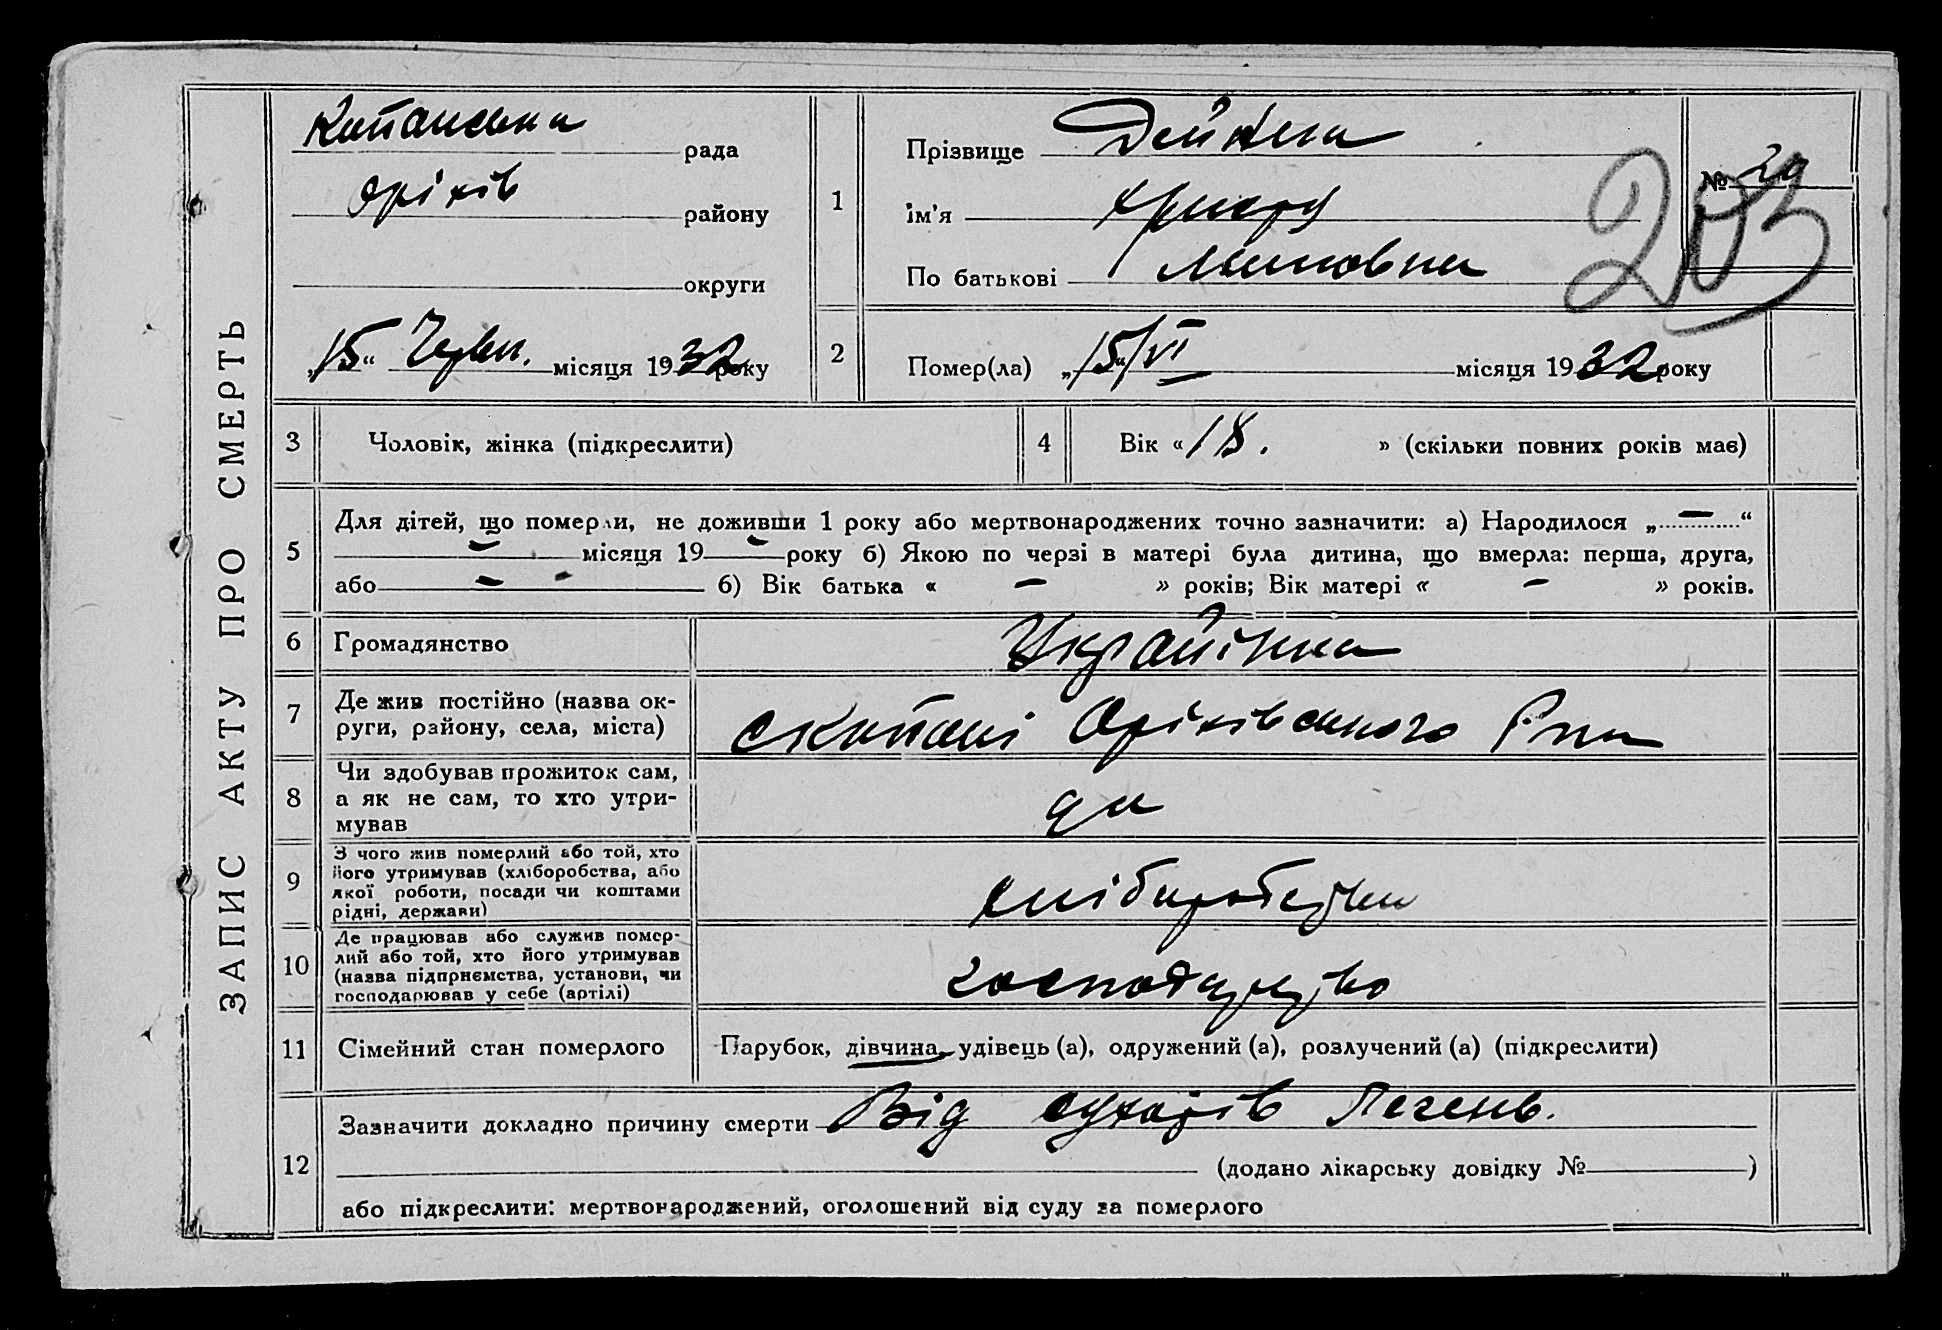 ЗАПИС АКТУ ПРО СМЕРТЬ
Копанська рада
Оріхів району
округи
„15“ Червн. місяця 1932 року
1
Прізвище Дейнега
Ім'я
По батькові
№
203
2
Помер(ла) „15“/VI місяця 1932 року
3
Чоловік, жінка (підкреслити)
4
Вік « 18. » (скільки повних років має)
5
Для дітей, що померли, не доживши 1 року або мертвонароджених точно зазначити: а) Народилося „ — “
— місяця 19 — року б) Якою по черзі в матері була дитина, що вмерла: перша, друга,
або — б) Вік батька « — » років; Вік матері « — » років.
6
Громадянство
Українка
7
Де жив постійно (назва ок-
руги, району, села, міста)
с Копані Оріхівського Р-на
8
Чи здобував прожиток сам,
а як не сам, то хто утри-
мував
да
9
З чого жив померлий або той, хто
його утримував (хліборобства, або
якої роботи, посади чи коштами
рідні, держави)
10
Де працював або служив помер-
лий або той, хто його утримував
(назва підприємства, установи, чи
господарював у себе (артілі)
господарство
11
Сімейний стан померлого
Парубок, дівчина, удівець (а), одружений (а), розлучений (а) (підкреслити)
12
Зазначити докладно причину смерти Від сухорів Легень.
(додано лікарську довідку № )
або підкреслити: мертвонароджений, оголошений від суду за померлого